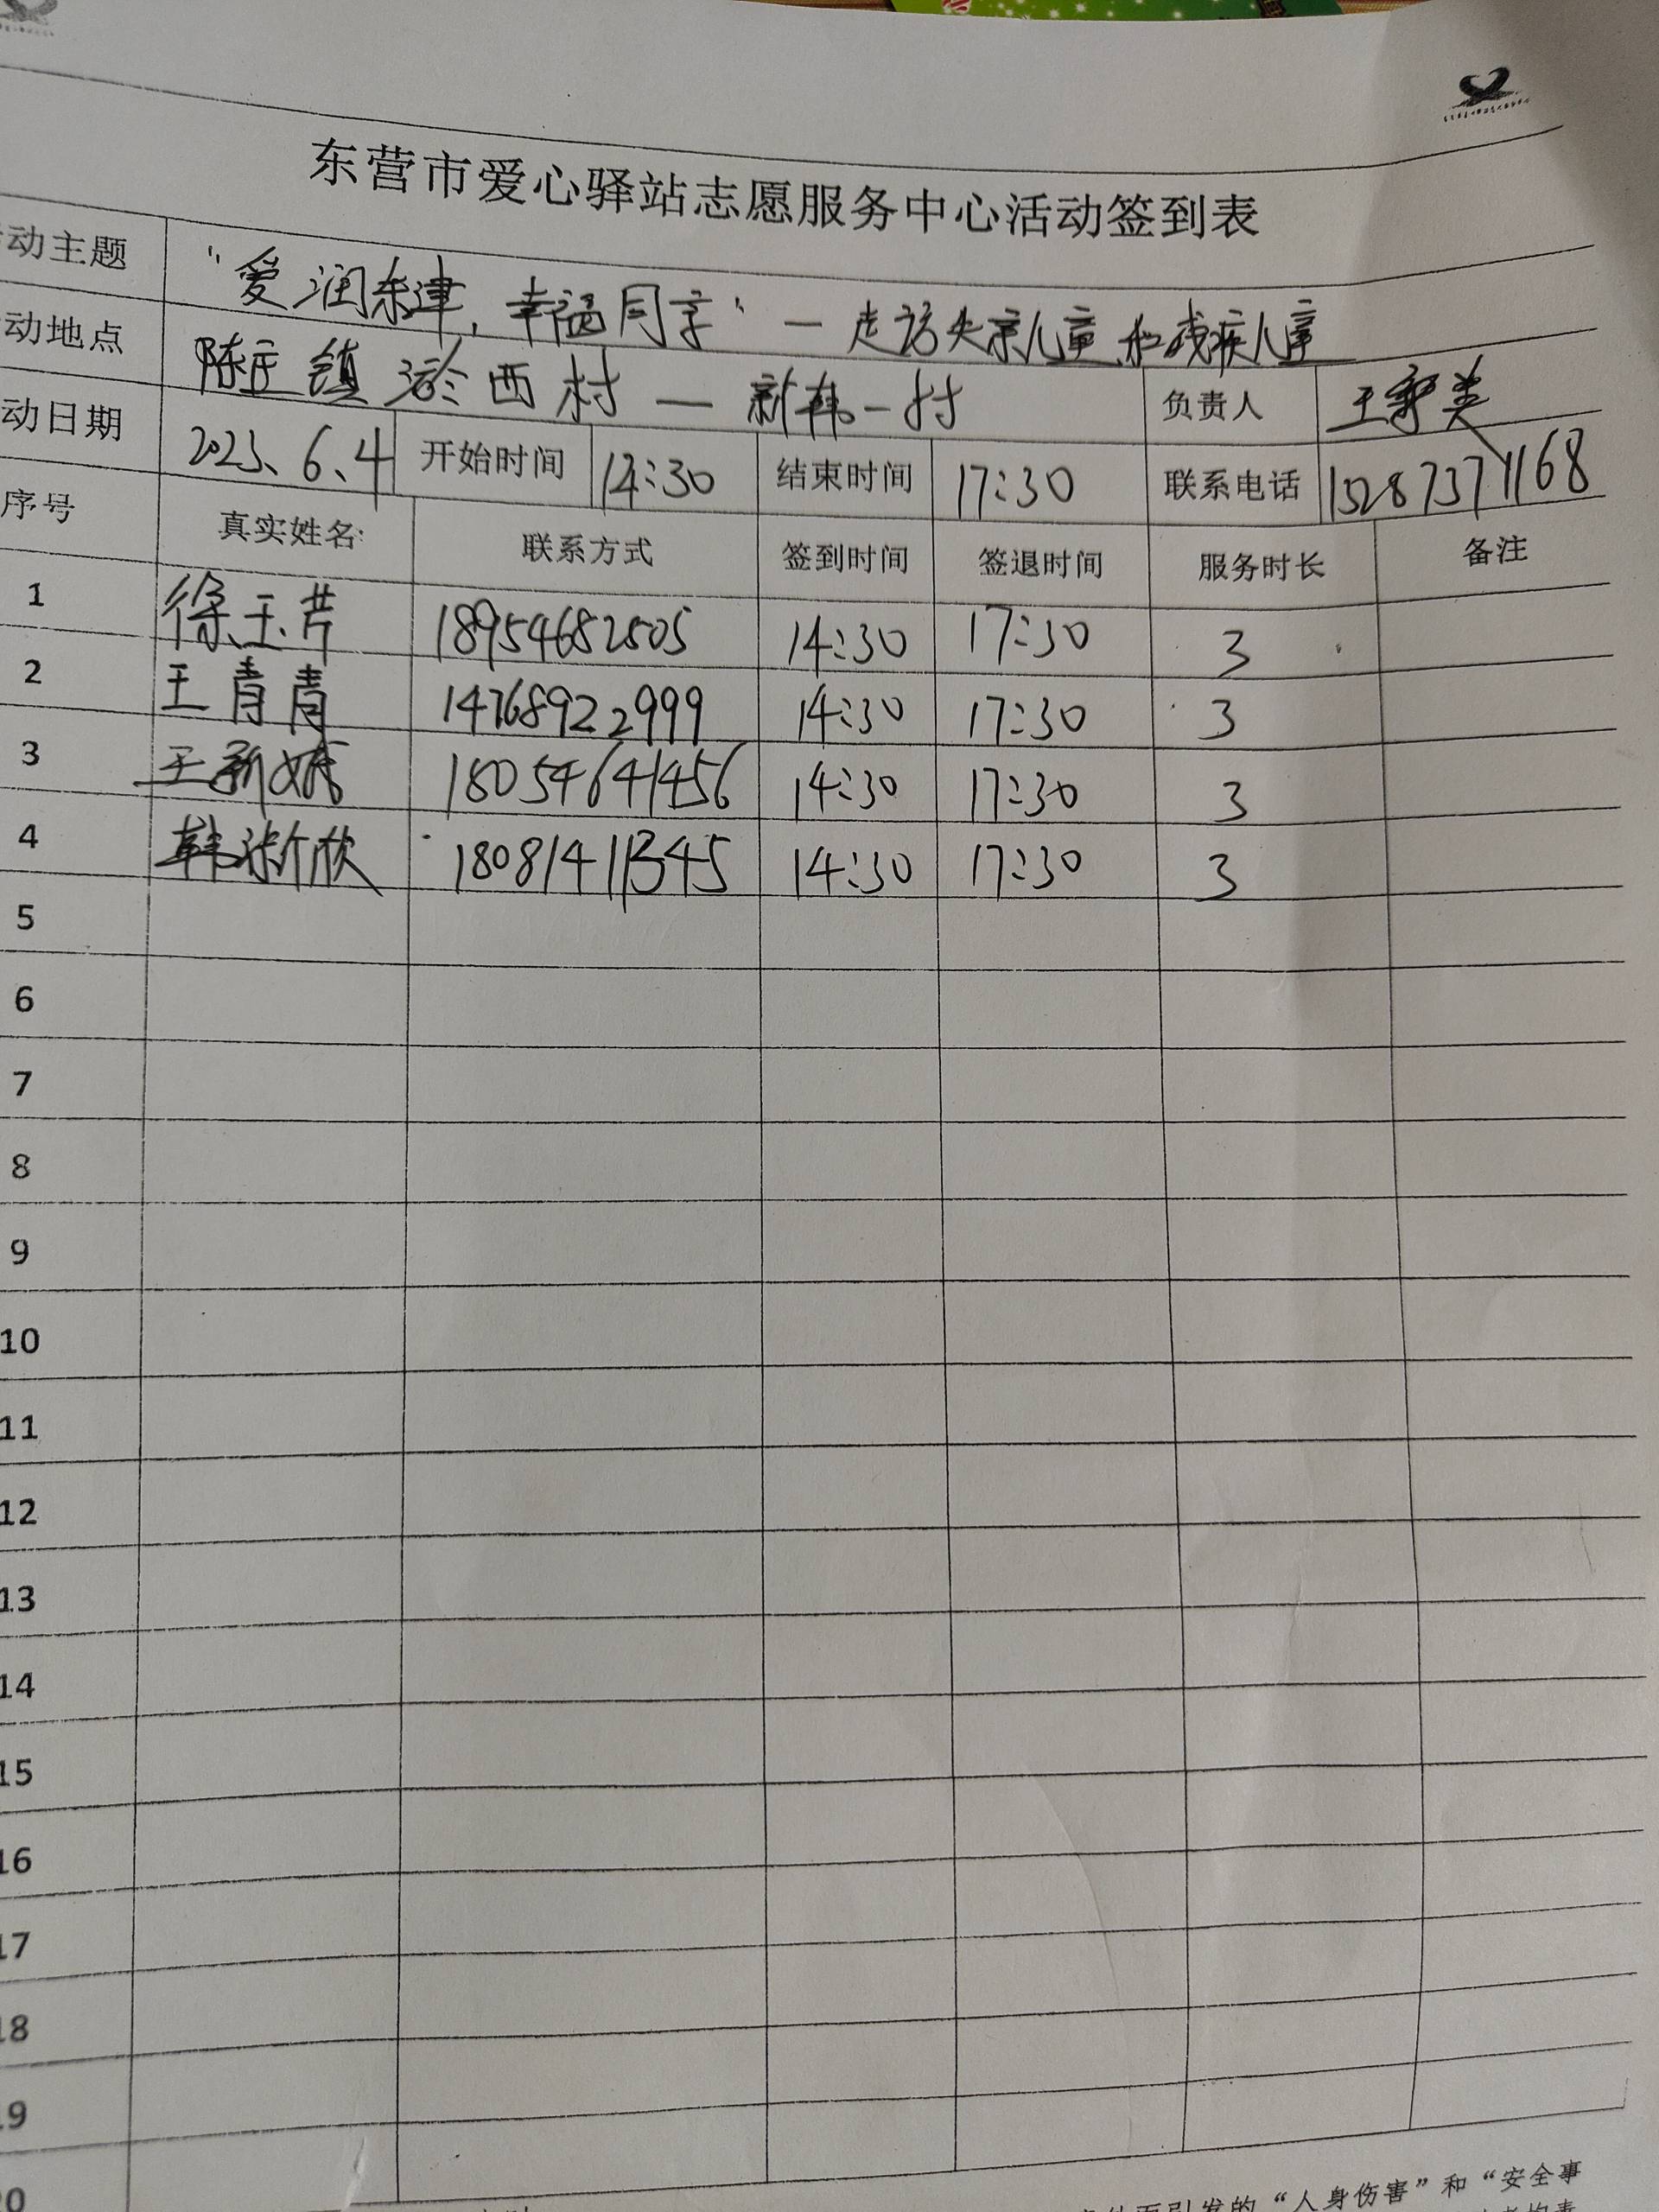 东营市爱心驿站志愿服务中心活动签到表
动主题 "爱润东津,幸福同享"—走访失亲儿童和残疾儿童
动地点 陈庄镇 西村—新韩一村 负责人 王
动日期 2023.6.4 开始时间 14:30 结束时间 17:30 联系电话 15287371168
序号 真实姓名: 联系方式 签到时间 签退时间 服务时长 备注
1 徐玉芹 18954682505 14:30 17:30 3
2 王青青 14768922999 14:30 17:30 3
3 王新娥 18054641456 14:30 17:30 3
4 韩 欣 18081411345 14:30 17:30 3
5
6
7
8
9
10
11
12
13
14
15
16
17
18
19
20
而引发的“人身伤害”和“安全事